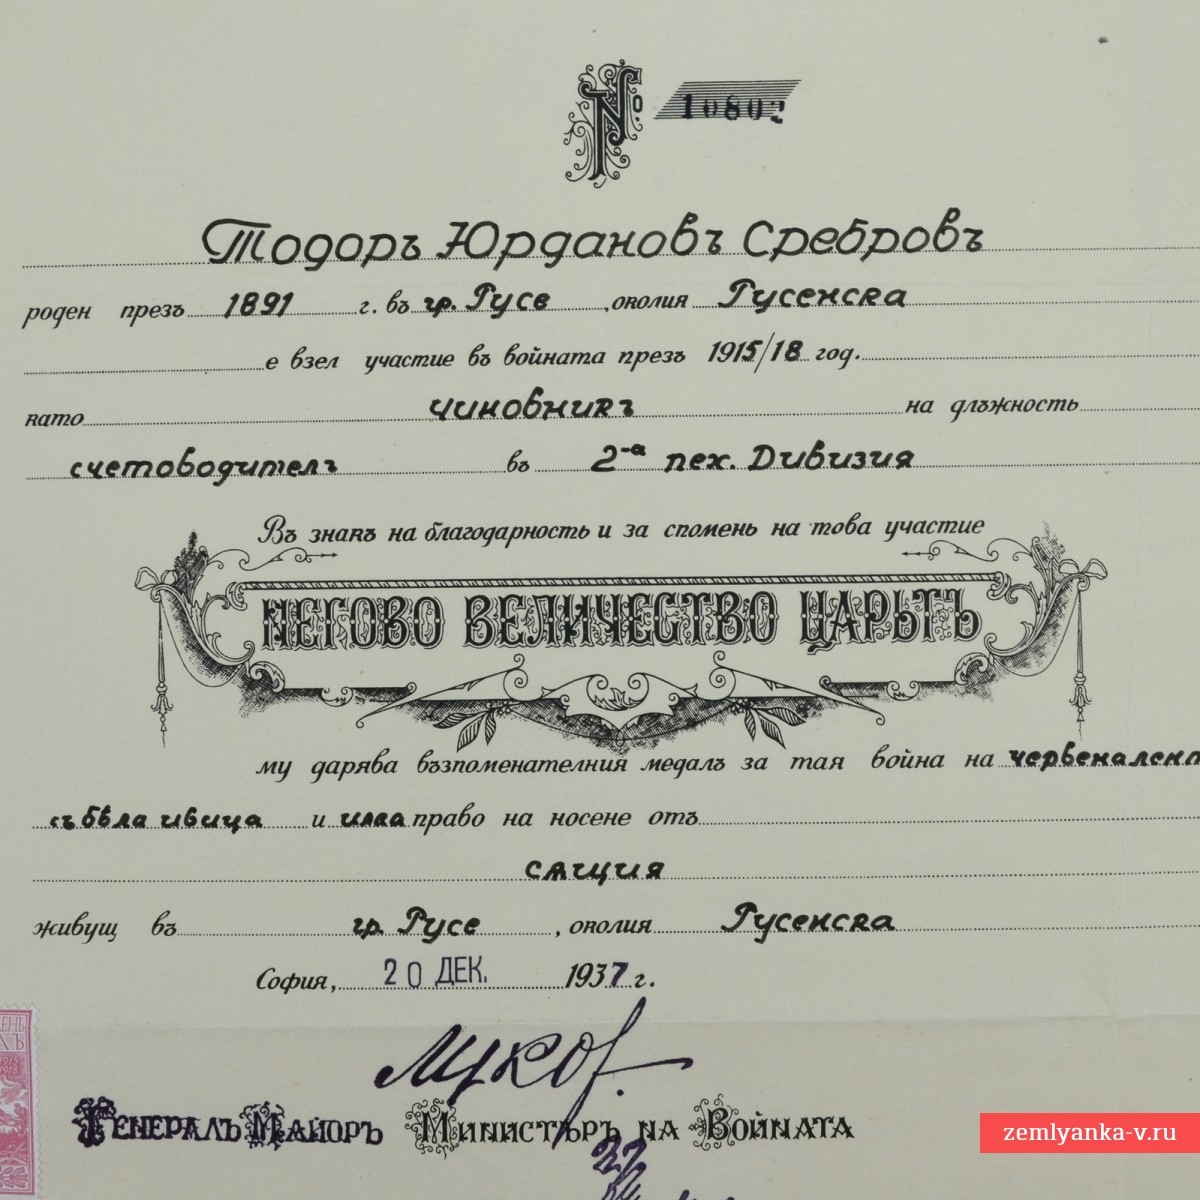 № 10802
Тодоръ Юрдановъ Сребровъ
роден презъ 1891 г. въ гр. Русе, околия Русенска
е взел участие въ войната презъ 1915/18 год.
като чиновникъ на длъжность
счетоводителъ въ 2-а пех. Дивизия
Въ знакъ на благодарность и за споменъ на това участие
НЕГОВО ВЕЛИЧЕСТВО ЦАРЬТЪ
му дарява възпоменателния медалъ за тая война на червена лент
съ бѣла ивица и има право на носене отъ
сѫщия
живущ въ гр. Русе, околия Русенска
София, 20 ДЕК. 1937 г.
Луков.
Генералъ Майоръ Министъръ на Войната
zemlyanka-v.ru